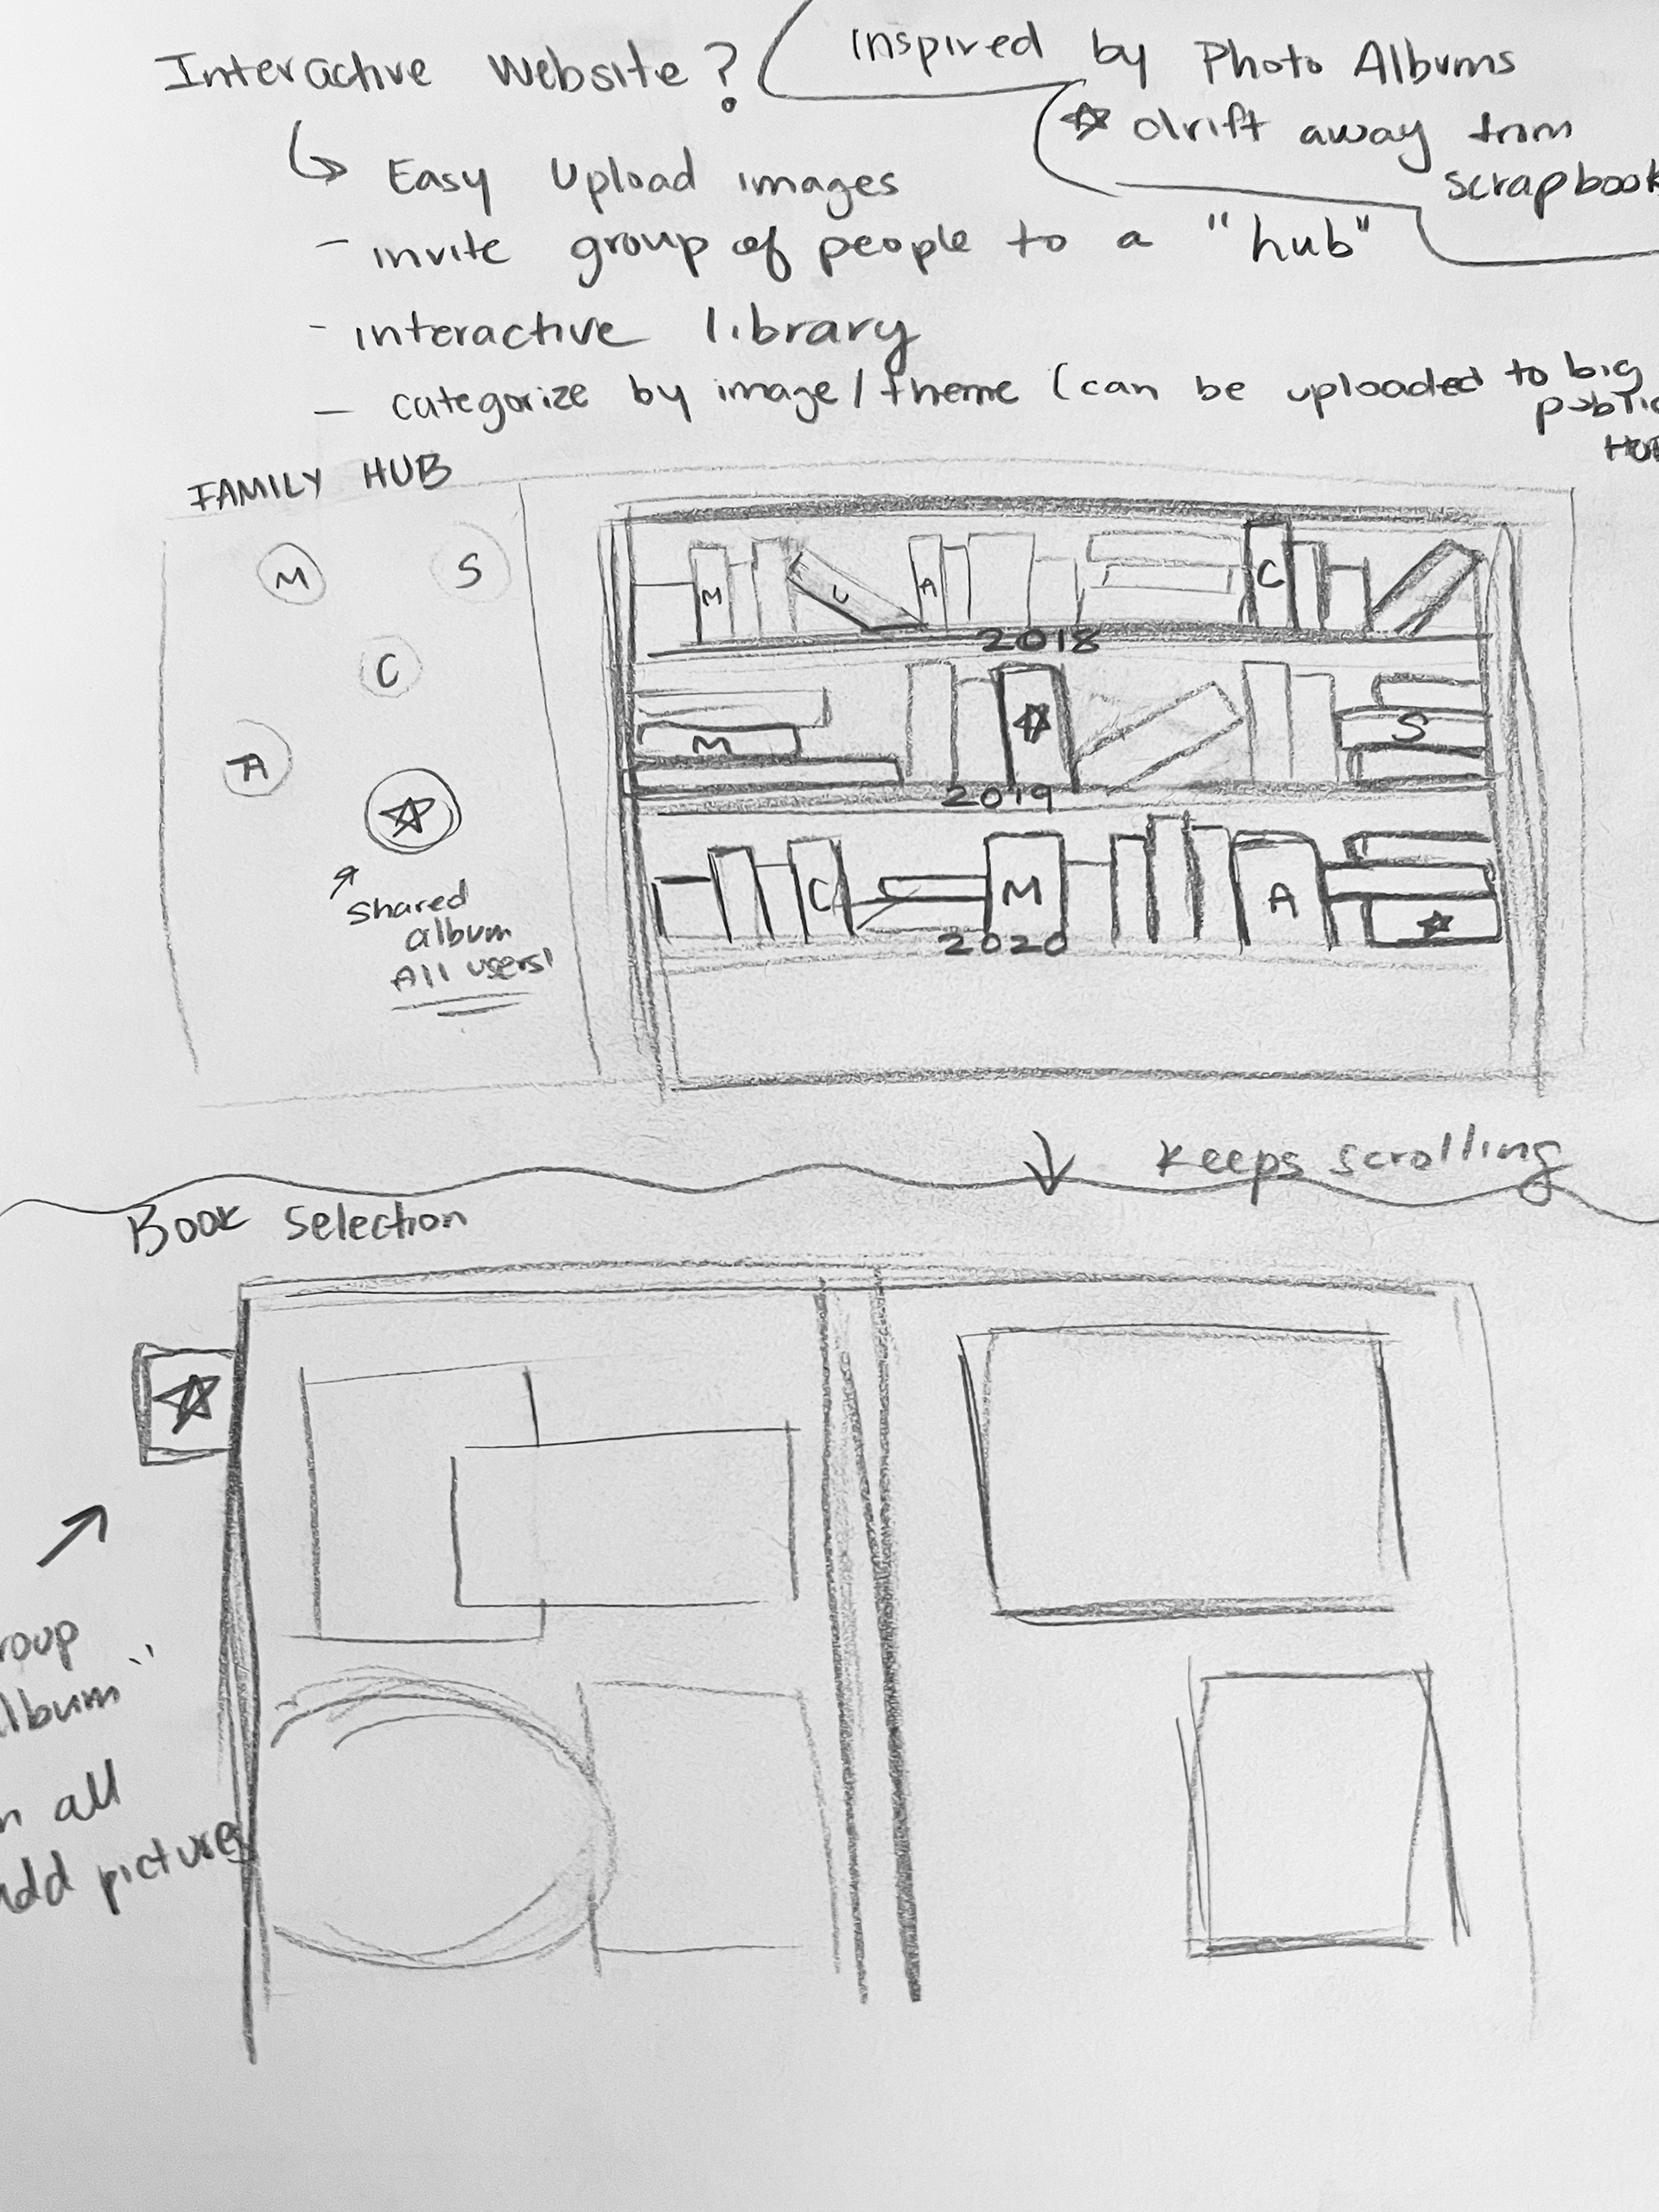 Interactive Website?
inspired by Photo Albums
☆ drift away from
scrapbook
Easy Upload images
- invite group of people to a "hub"
- interactive library
- categorize by image / theme (can be uploaded to big
public
HUB
FAMILY HUB
M
S
C
A
☆
shared
album
All users!
M
A
C
2018
M
☆
S
2019
C
M
A
☆
2020
↓ keeps scrolling
Book Selection
☆
roup
album"
n all
add pictures